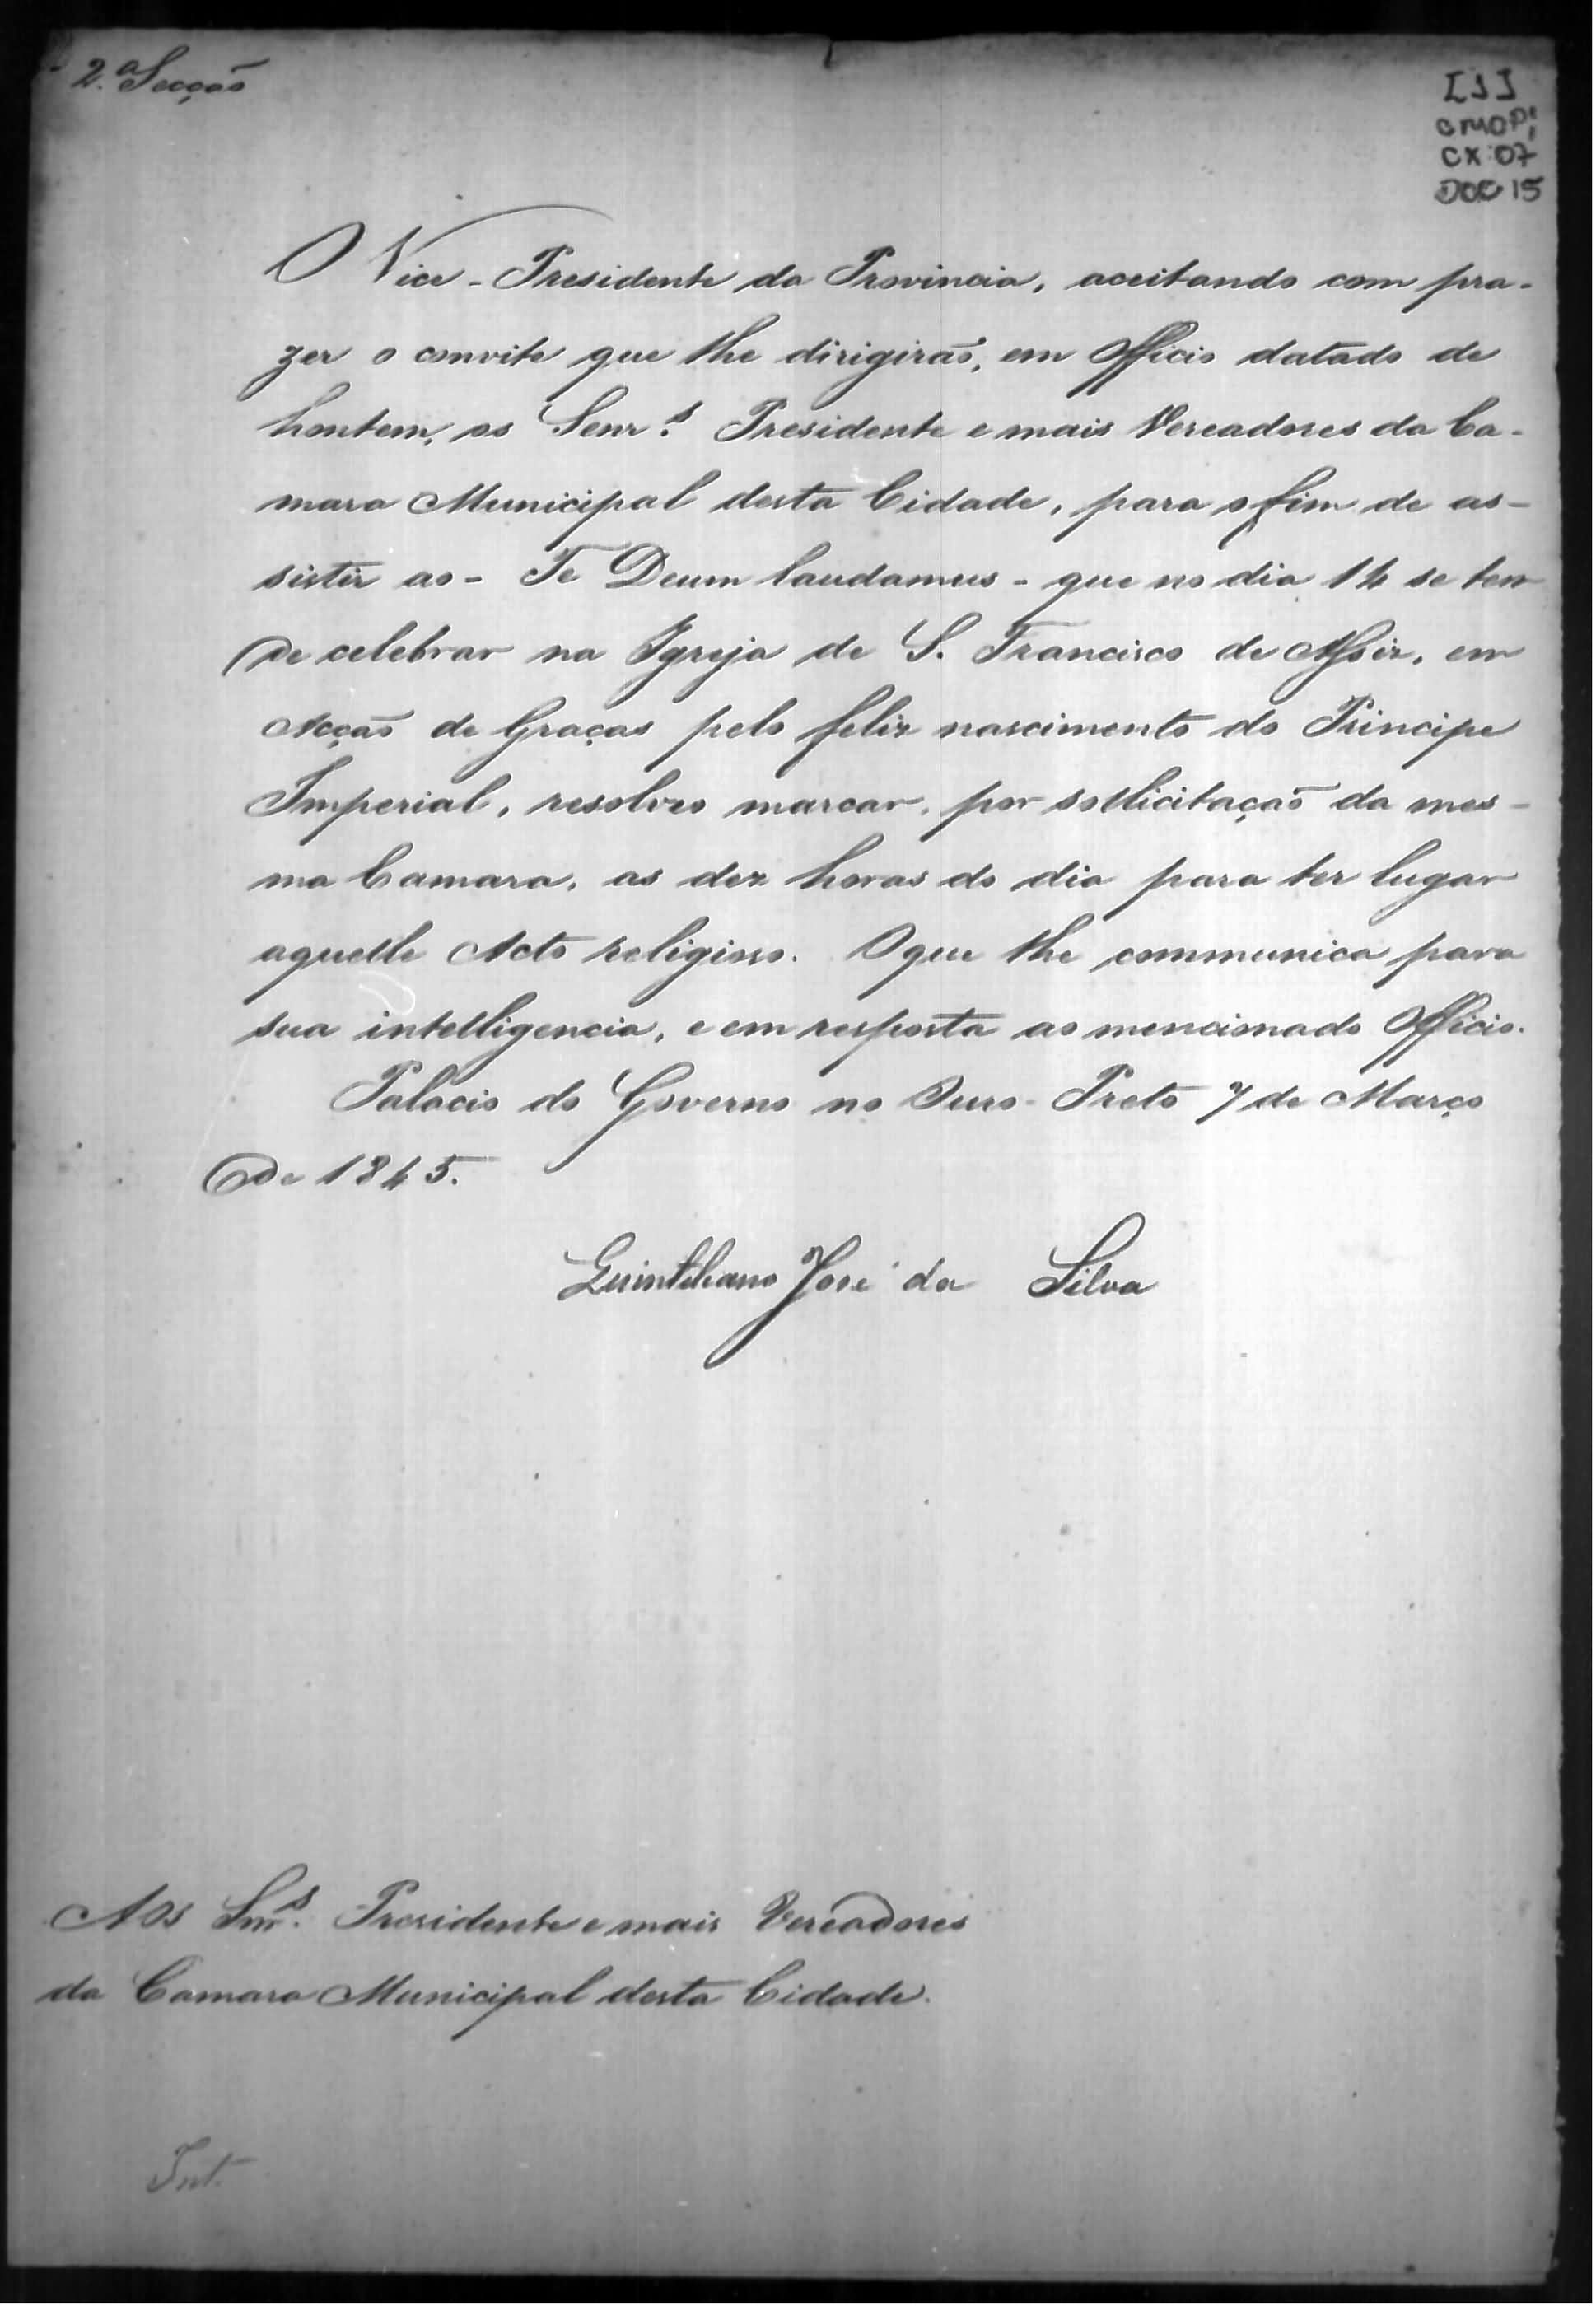 2.ª Secção
[1]
CMOP;
CX 07
DOC 15
O Vice-Presidente da Provincia, aceitando com pra-
zer o convite que lhe dirigirão, em Officio datado de
hontem, os Senr.s Presidente e mais Vereadores da Ca-
mara Municipal desta Cidade, para o fim de as-
sistir ao - Te Deum laudamus - que no dia 14 se tem
de celebrar na Igreja de S. Francisco de Assiz, em
Acção de Graças pelo feliz nascimento do Principe
Imperial, resolveo marcar, por sollicitação da mes-
ma Camara, as dez horas do dia para ter lugar
aquelle Acto religioso. O que lhe communica para
sua intelligencia, e em resposta ao mencionado Officio.
Palacio do Governo no Ouro-Preto 7 de Março
de 1845.
Quintiliano José da Silva
Aos Snr.s Presidente e mais Vereadores
da Camara Municipal desta Cidade.
Int.